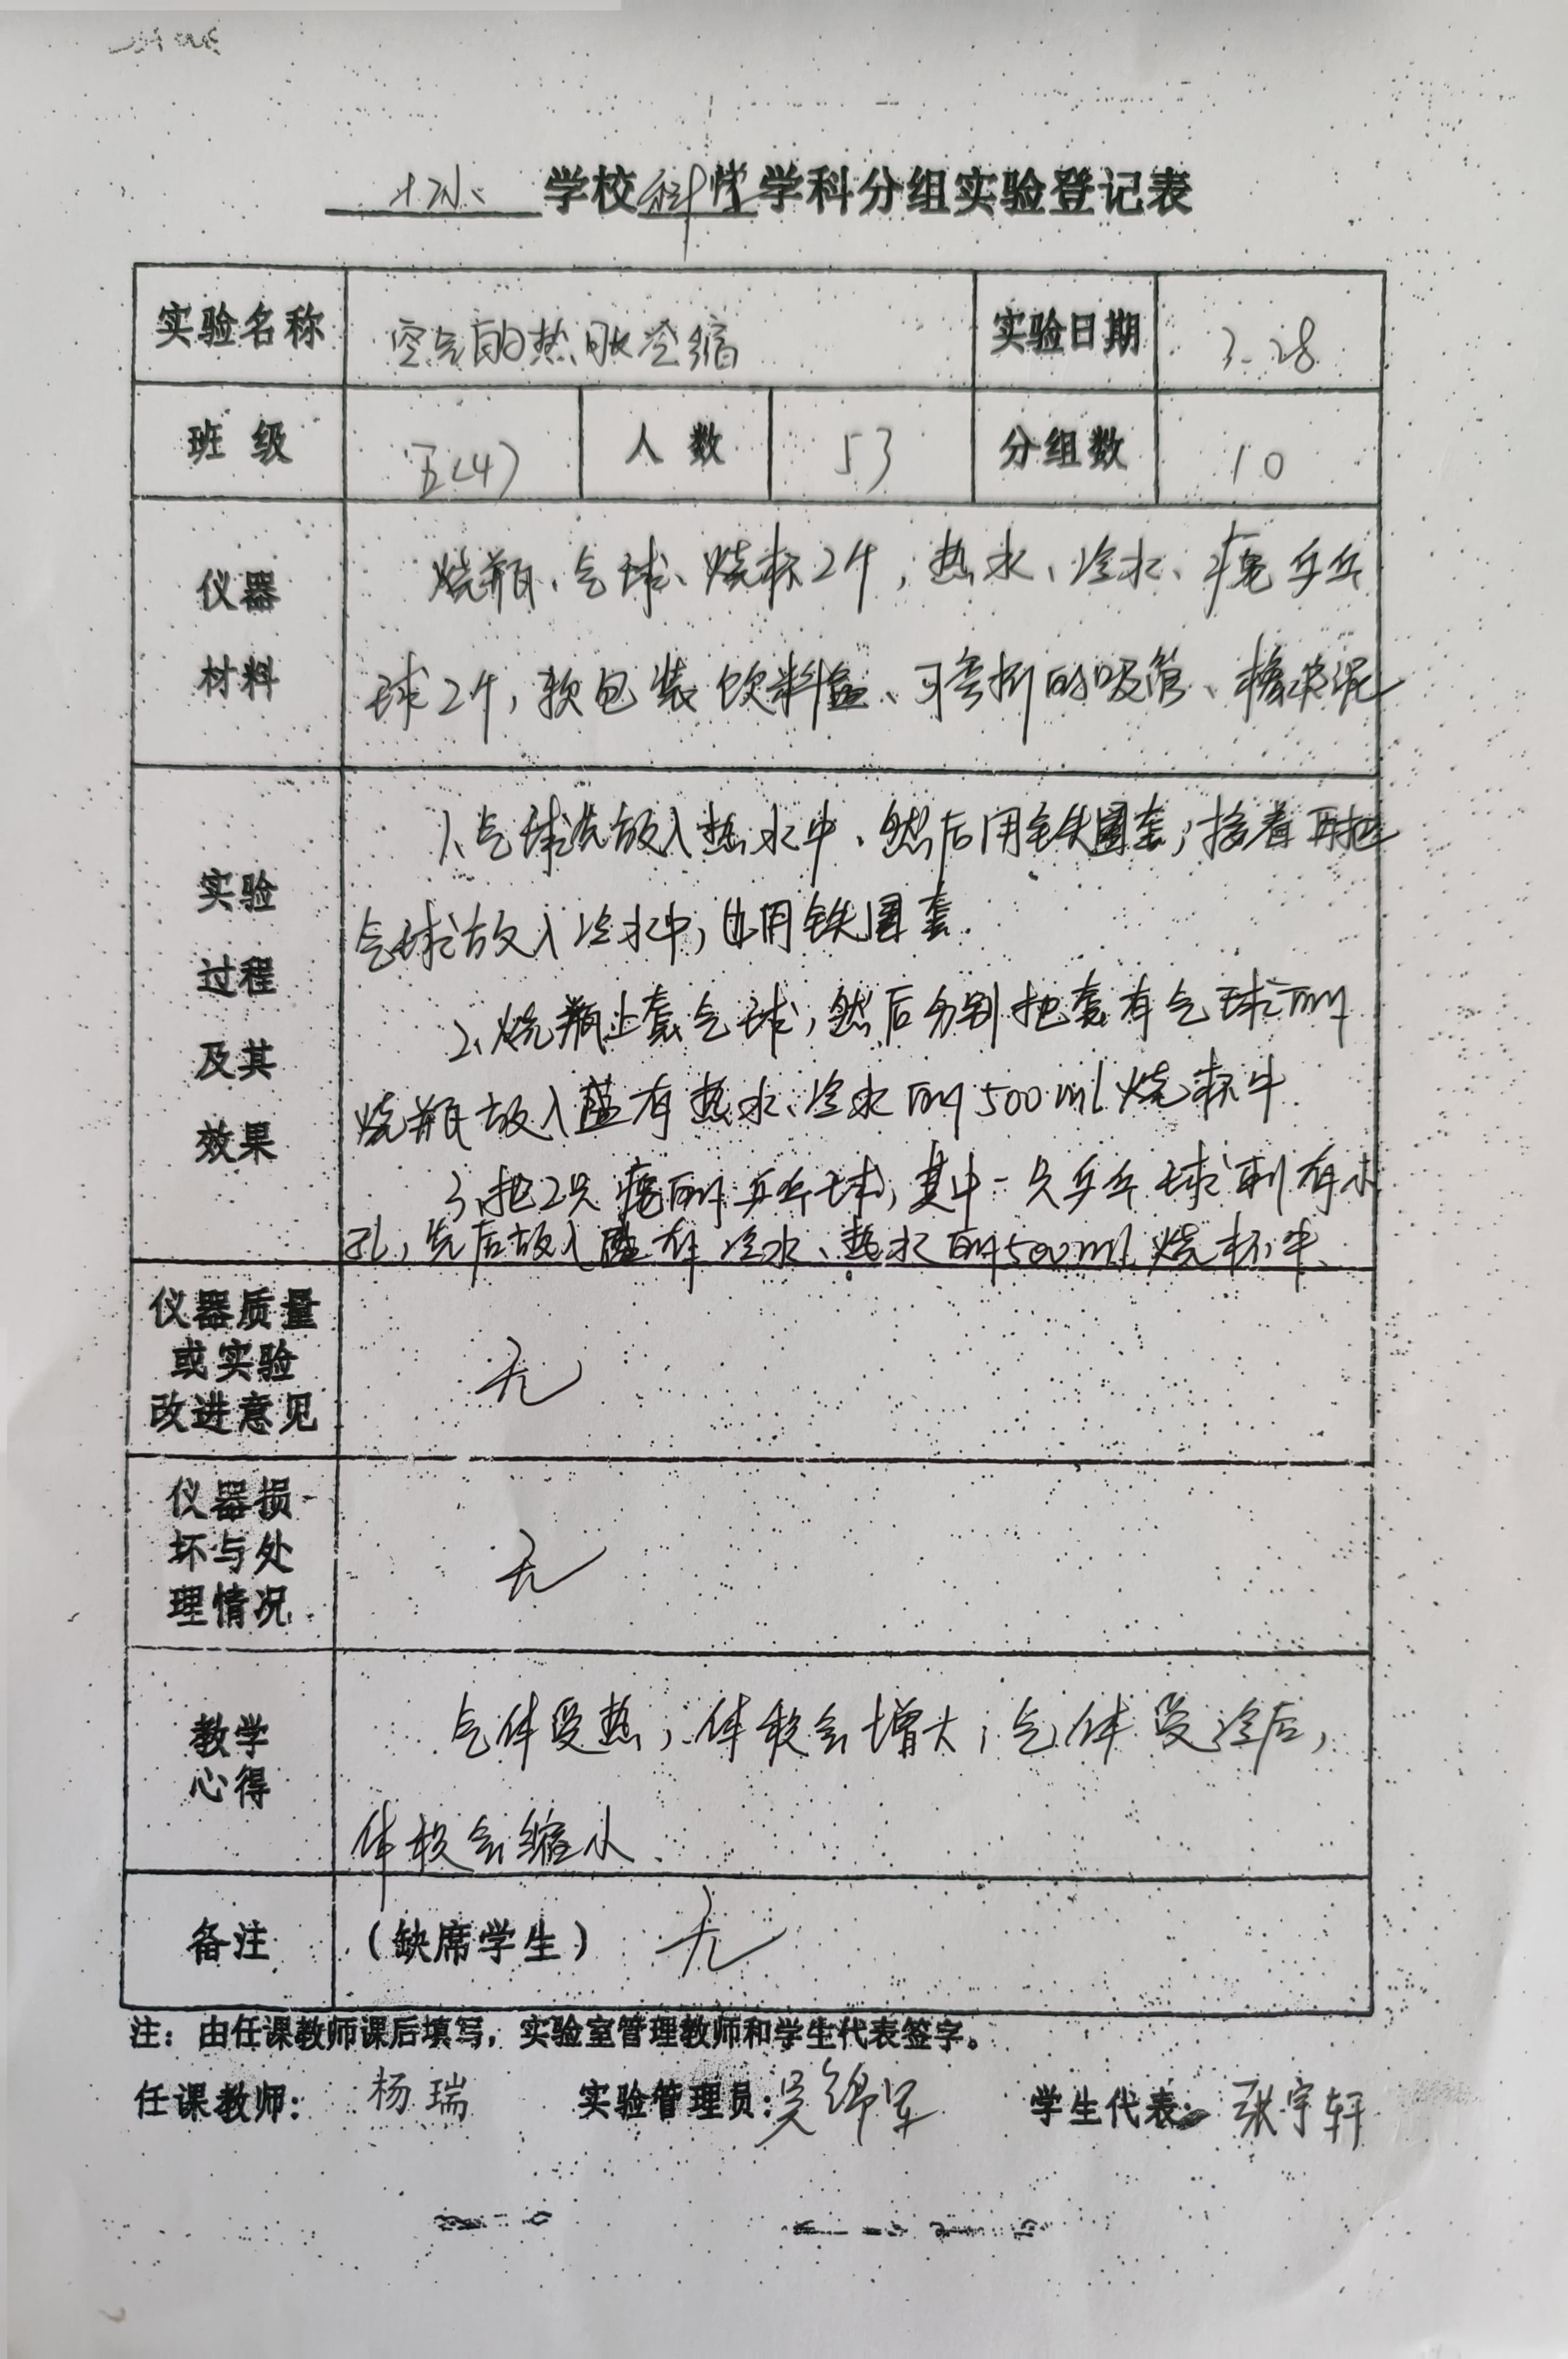 学校科学学科分组实验登记表
实验名称 空气的热胀冷缩 实验日期 3.28
班级 五(4) 人数 53 分组数 10
仪器
材料
烧瓶、气球、烧杯2个,热水、冷水、瘪乒乓
球2个,软包装饮料盒、可弯折的吸管、橡皮泥
实验
过程
及其
效果
1、气球先放入热水中、然后用铁圈套,接着再把
气球放入冷水中,也用铁圈套.
2、烧瓶上套气球,然后分别把套有气球的
烧瓶放入盛有热水、冷水的500ml烧杯中.
3、把2只瘪的乒乓球,其中一只乒乓球刺有小
孔,先后放入盛有冷水、热水的500ml烧杯中、
仪器质量
或实验
改进意见
无
仪器损
坏与处
理情况
无
教学
心得
气体受热,体积会增大;气体受冷后,
体积会缩小.
备注 (缺席学生) 无
注:由任课教师课后填写,实验室管理教师和学生代表签字。
任课教师: 杨瑞 实验管理员:吴锦军 学生代表: 张宇轩